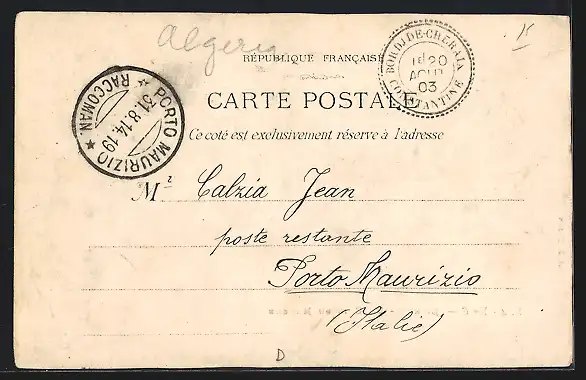 Algeria
RÉPUBLIQUE FRANÇAISE
BORDJ-DE-CHERAIA
20
AOUT
03
CONSTANTINE
CARTE POSTALE
Ce coté est exclusivement réservé à l'adresse
PORTO MAURIZIO
31.8.14.19
RACCOMAN.
Mr Calzia Jean
poste restante
Porto Maurizio
(Italie)
D